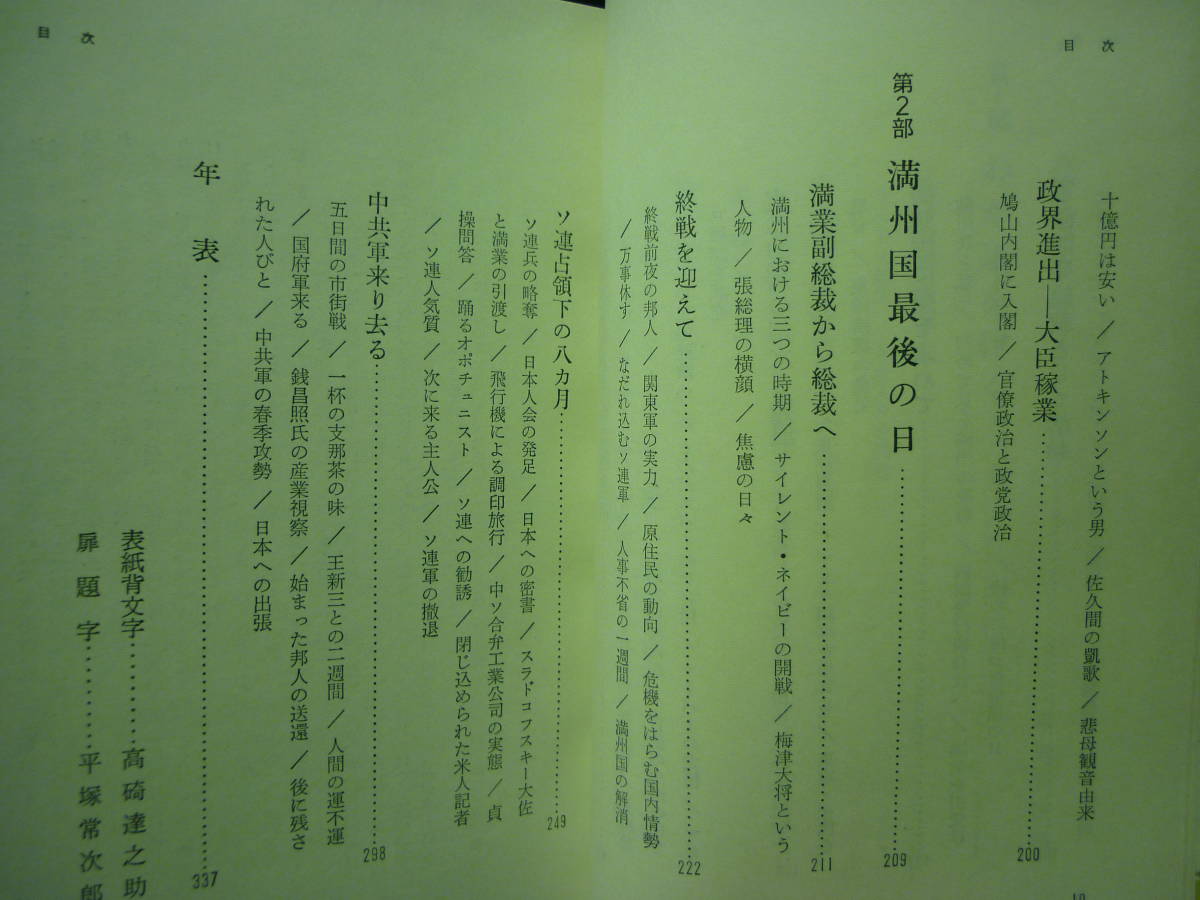 目次
十億円は安い／アトキンソンという男／佐久間の凱歌／悲母観音由来
政界進出―大臣稼業…………200
鳩山内閣に入閣／官僚政治と政党政治
第2部 満州国最後の日…………209
満業副総裁から総裁へ…………211
満州における三つの時期／サイレント・ネイビーの開戦／梅津大将という
人物／張総理の横顔／焦慮の日々
終戦を迎えて…………222
終戦前夜の邦人／関東軍の実力／原住民の動向／危機をはらむ国内情勢
／万事休す／なだれ込むソ連軍／人事不省の一週間／満州国の解消
目次
ソ連占領下の八カ月…………249
ソ連兵の略奪／日本人会の発足／日本への密書／スラドコフスキー大佐
と満業の引渡し／飛行機による調印旅行／中ソ合弁工業公司の実態／貞
操問答／踊るオポチュニスト／ソ連への勧誘／閉じ込められた米人記者
／ソ連人気質／次に来る主人公／ソ連軍の撤退
中共軍来り去る…………298
五日間の市街戦／一杯の支那茶の味／王新三との二週間／人間の運不運
／国府軍来る／銭昌照氏の産業視察／始まった邦人の送還／後に残さ
れた人びと／中共軍の春季攻勢／日本への出張
年表…………337
表紙背文字…………高碕達之助
扉題字…………平塚常次郎